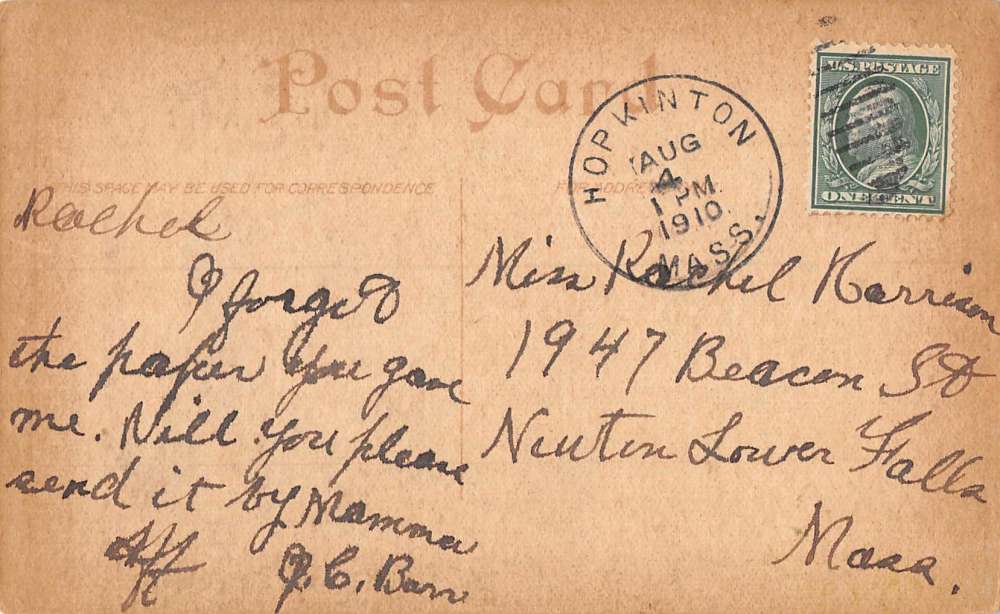 Post Card
THIS SPACE MAY BE USED FOR CORRESPONDENCE
FOR ADDRESS
HOPKINTON
AUG
4
1 PM
1910
MASS.
U.S. POSTAGE
ONE CENT
Rachel
I forgot
the paper you gave
me. Will you please
send it by Mamma
Aff
Miss Rachel Harrison
1947 Beacon St
Newton Lower Falls
Mass.